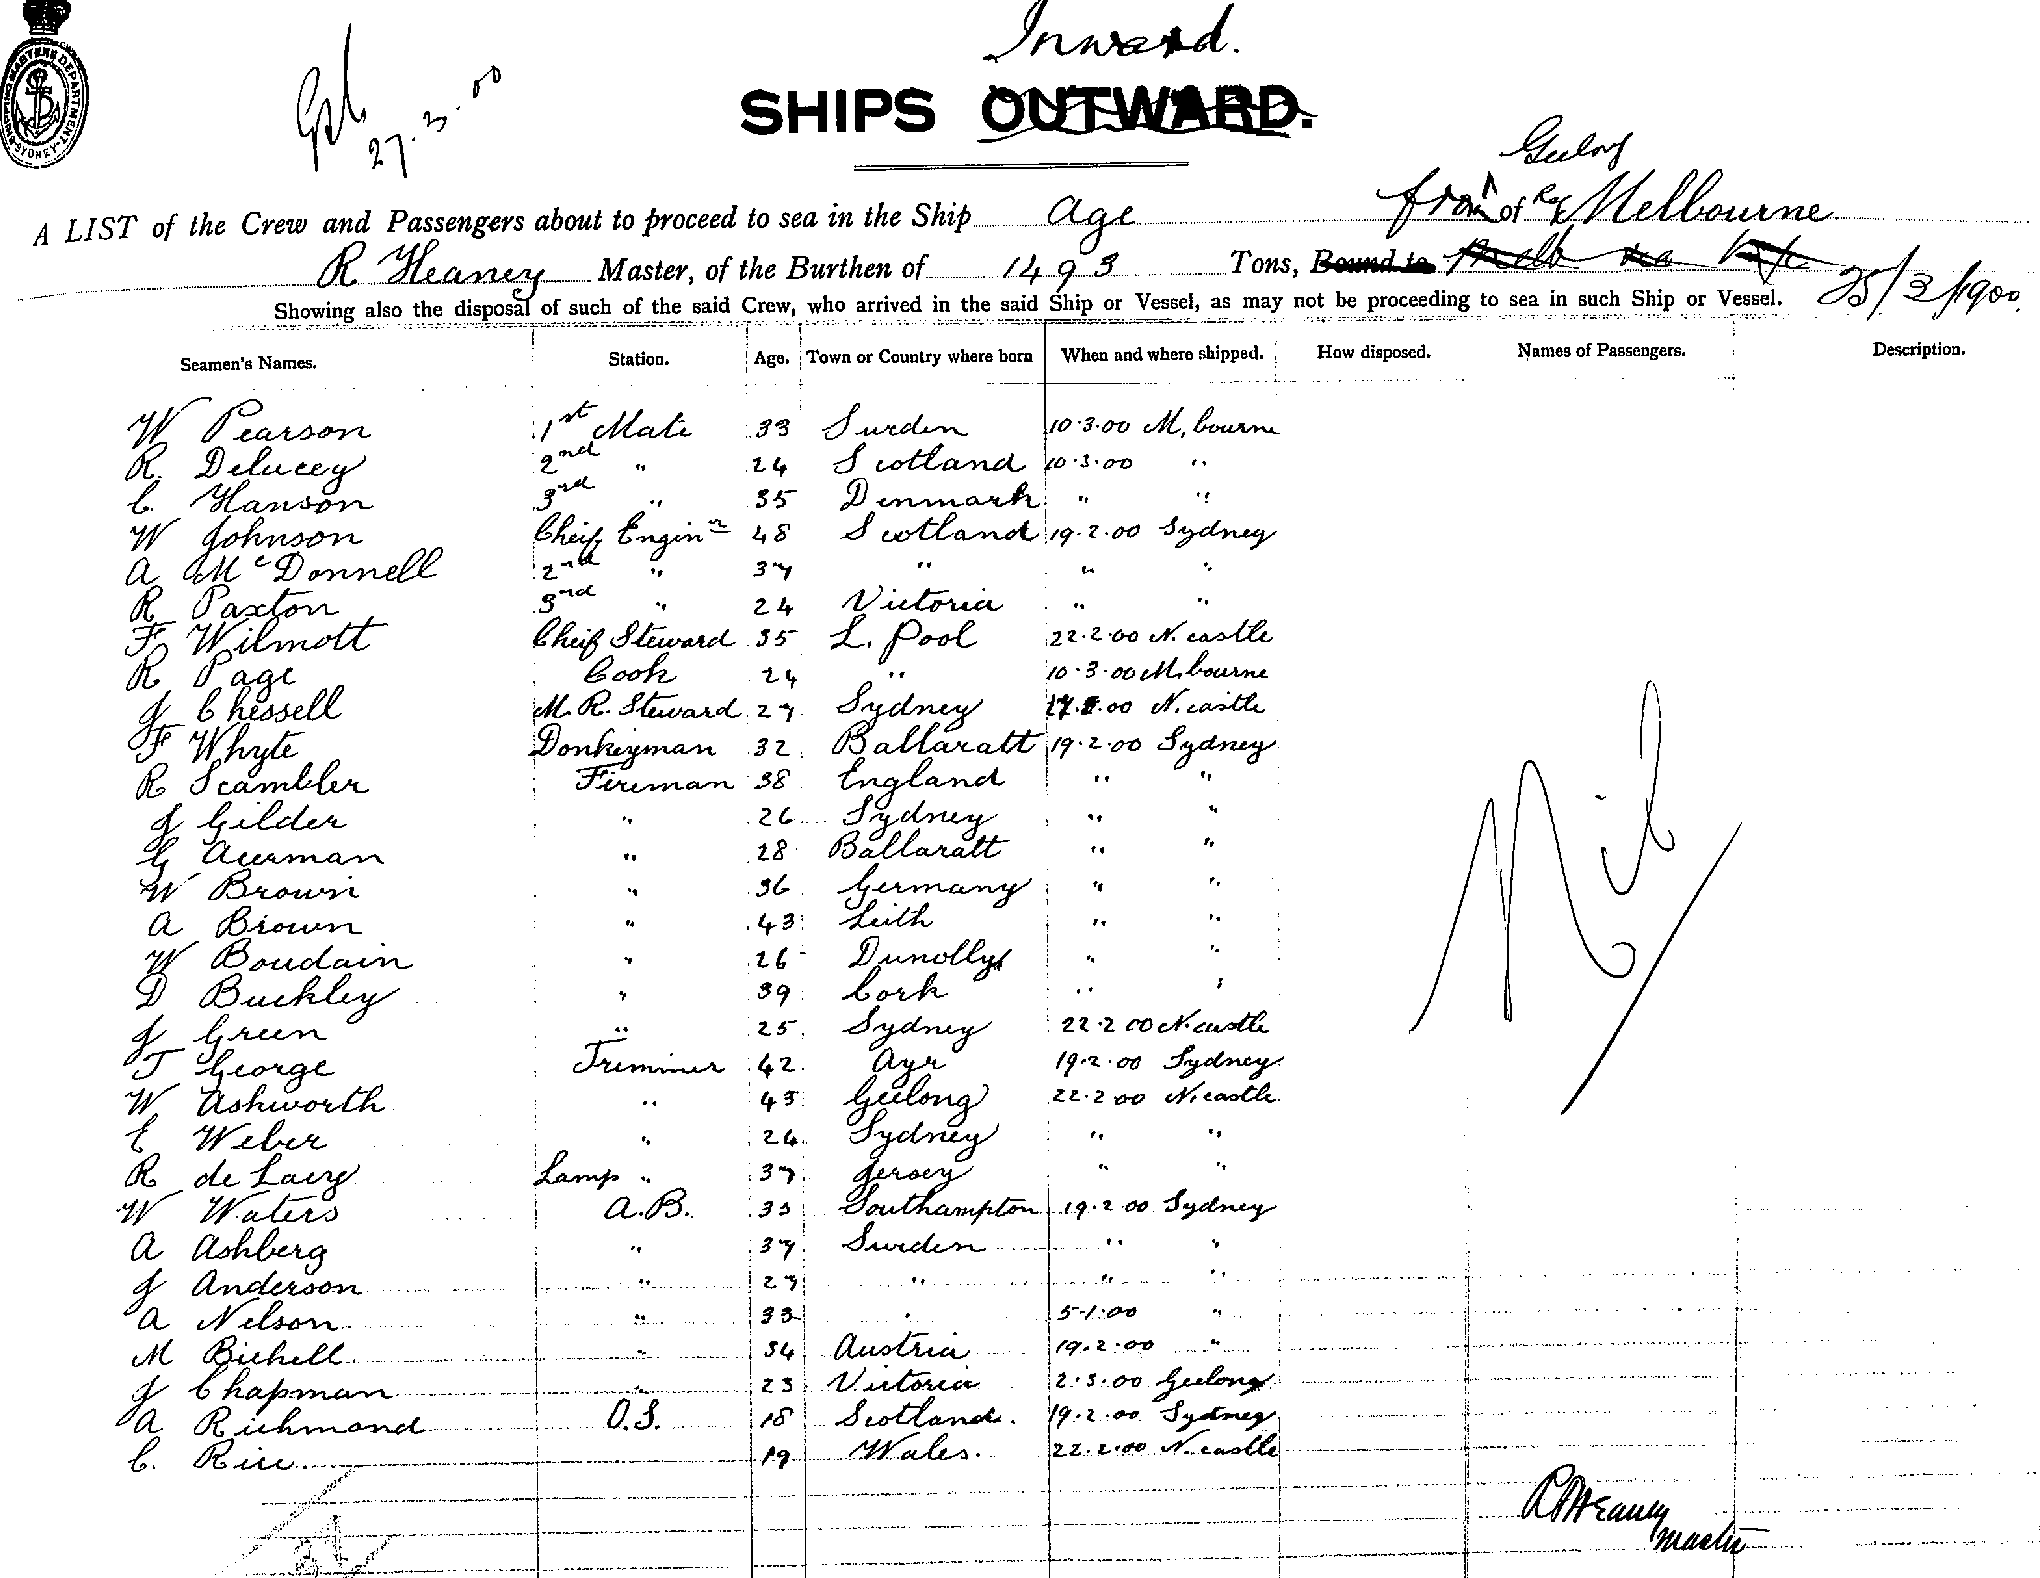 Inward.
SHIPS OUTWARD.
27.3.00
SHIPPING MASTERS DEPARTMENT SYDNEY
Geelong
A LIST of the Crew and Passengers about to proceed to sea in the Ship Age from of Melbourne
R Heaney Master, of the Burthen of 1493 Tons, Bound to Melb
Showing also the disposal of such of the said Crew, who arrived in the said Ship or Vessel, as may not be proceeding to sea in such Ship or Vessel. 25/3/1900.
Seamen's Names. Station. Age. Town or Country where born When and where shipped. How disposed. Names of Passengers. Description.
W Pearson 1st Mate 33 Sweden 10.3.00 M,bourne
R. Delucey 2nd " 24 Scotland 10.3.00 "
C. Hanson 3rd " 35 Denmark " "
W Johnson Cheif Enginr 48 Scotland 19.2.00 Sydney
A McDonnell 2nd " 37 " " "
R Paxton 3rd " 24 Victoria " "
F Wilmott Cheif Steward 35 L. Pool 22.2.00 N. castle
R Page Cook 24 " 10.3.00 M.bourne
J Chessell M. R. Steward 27 Sydney .00 N. castle
F Whyte Donkeyman 32 Ballaratt 19.2.00 Sydney
R Scambler Fireman 38 England " "
J Gilder " 26 Sydney " "
G Auerman " 28 Ballaratt " "
W Brown " 36 Germany " "
A Brown " 43 Leith " "
W Boudain " 26 Dunolly " "
D Buckley " 39 Cork " "
J Green " 25 Sydney 22.2.00 N. castle
T George Trimmer 42 Ayr 19.2.00 Sydney
W Ashworth " 43 Geelong 22.2.00 N. castle
E Weber " 24 Sydney " "
R de Lacy Lamp " 37 Jersey " "
W Waters A.B. 33 Southampton 19.2.00 Sydney
A Ashberg " 37 Sweden " "
J Anderson " 27 " " "
A Nelson " 33 " 5.1.00 "
M Bichell " 34 Austria 19.2.00 "
J Chapman " 23 Victoria 2.3.00 Geelong
A Richmond O.S. 18 Scotland. 19.2.00 Sydney
C. Rice 19 Wales. 22.2.00 N. castle
Nil
R Heaney
Master